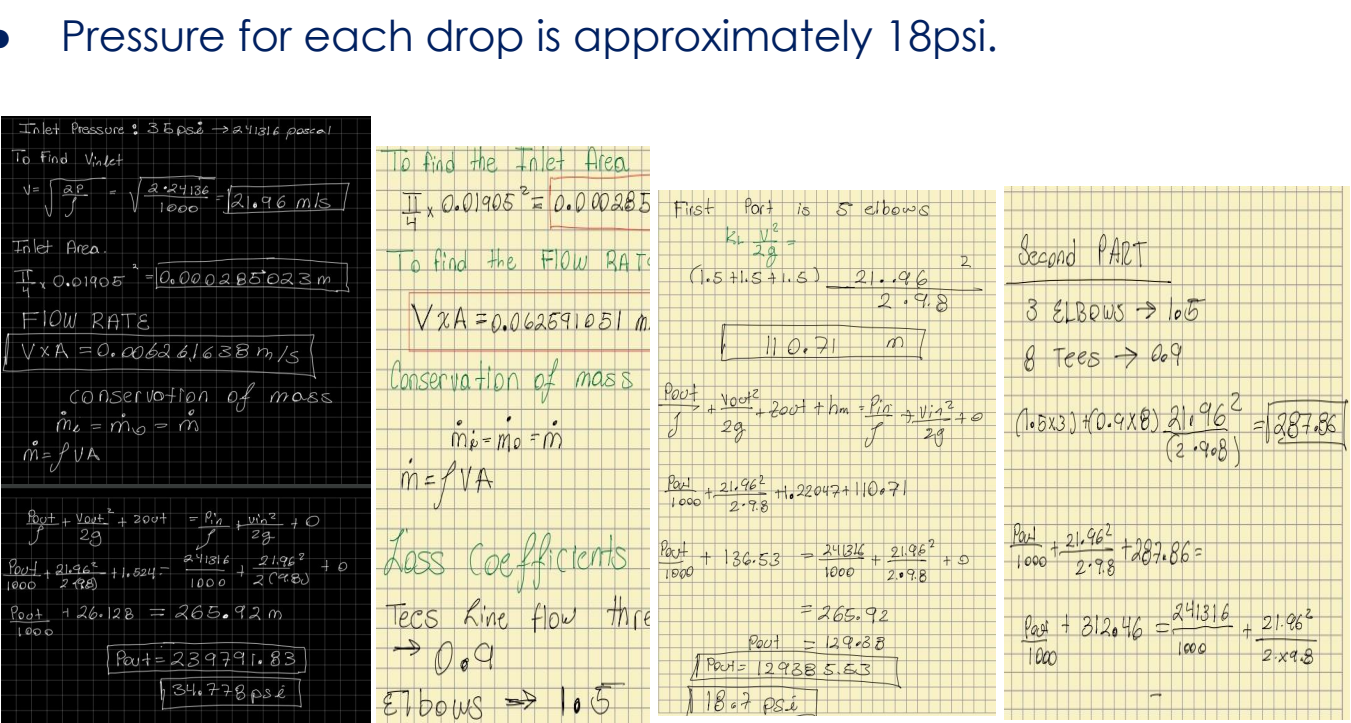 • Pressure for each drop is approximately 18psi.
Inlet Pressure : 35psi → 241316 pascal
To Find Vinlet
V= √(2P/ρ) = √(2•24136/1000) = 21.96 m/s
Inlet Area.
π/4 x 0.01905² = 0.000285023 m
FlOW RATE
V x A = 0.006261638 m/s
conservation of mass
ṁi = ṁo = ṁ
ṁ = ρVA
Pout/ρ + Vout²/2g + zout = Pin/ρ + vin²/2g + 0
Pout/1000 + 21.96²/2(9.8) + 1.524 = 241316/1000 + 21.96²/2(9.8) + 0
Pout/1000 + 26.128 = 265.92 m
Pout = 239791.83
34.778 psi
To find the Inlet Area
π/4 x 0.01905² = 0.000285
To find the FlOW RAT
V x A = 0.062591051 m
Conservation of mass
ṁi = ṁo = ṁ
ṁ = ρVA
Loss Coefficients
Tees line flow thre
→ 0.9
Elbows ⇒ 1.5
First Part is 5 elbows
KL V²/2g =
(1.5+1.5+1.5) 21..96²/2.9.8
110.71 m
Pout/ρ + Vout²/2g + zout + hm = Pin/ρ + Vin²/2g + 0
Pout/1000 + 21.96²/2.9.8 + 1.22047 + 110.71
Pout/1000 + 136.53 = 241316/1000 + 21.96²/2.9.8 + 0
= 265.92
Pout = 129.38
Pout = 129385.53
18.7 psi
Second PART
3 ELBOWS → 1.5
8 Tees → 0.9
(1.5x3)+(0.9x8) 21.96²/(2.9.8) = 287.86
Pout/1000 + 21.96²/2.9.8 + 287.86 =
Pout/1000 + 312.46 = 241316/1000 + 21.96²/2.x9.8